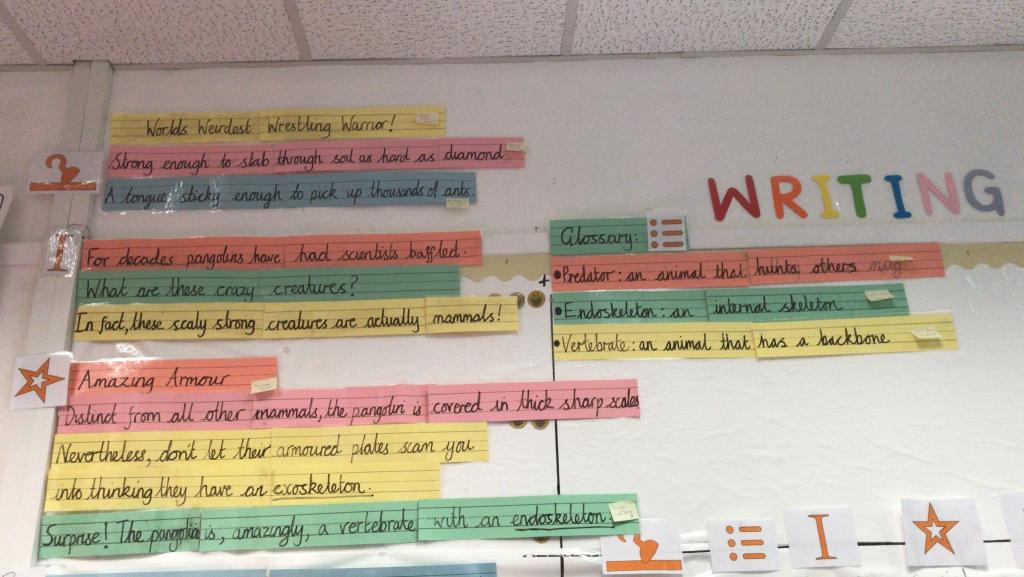 Worlds Weirdest Wrestling Warrior!
Strong enough to stab through soil as hard as diamond
A tongue sticky enough to pick up thousands of ants.
For decades pangolins have had scientists baffled.
What are these crazy creatures?
In fact, these scaly strong creatures are actually mammals!
Amazing Armour
Distinct from all other mammals, the pangolin is covered in thick sharp scales
Nevertheless, don't let their armoured plates scam you
into thinking they have an exoskeleton.
Surprise! The pangolin is, amazingly, a vertebrate with an endoskeleton.
WRITING
Glossary:
•Predator: an animal that hunts others
•Endoskeleton: an internal skeleton
•Vertebrate: an animal that has a backbone
I
I